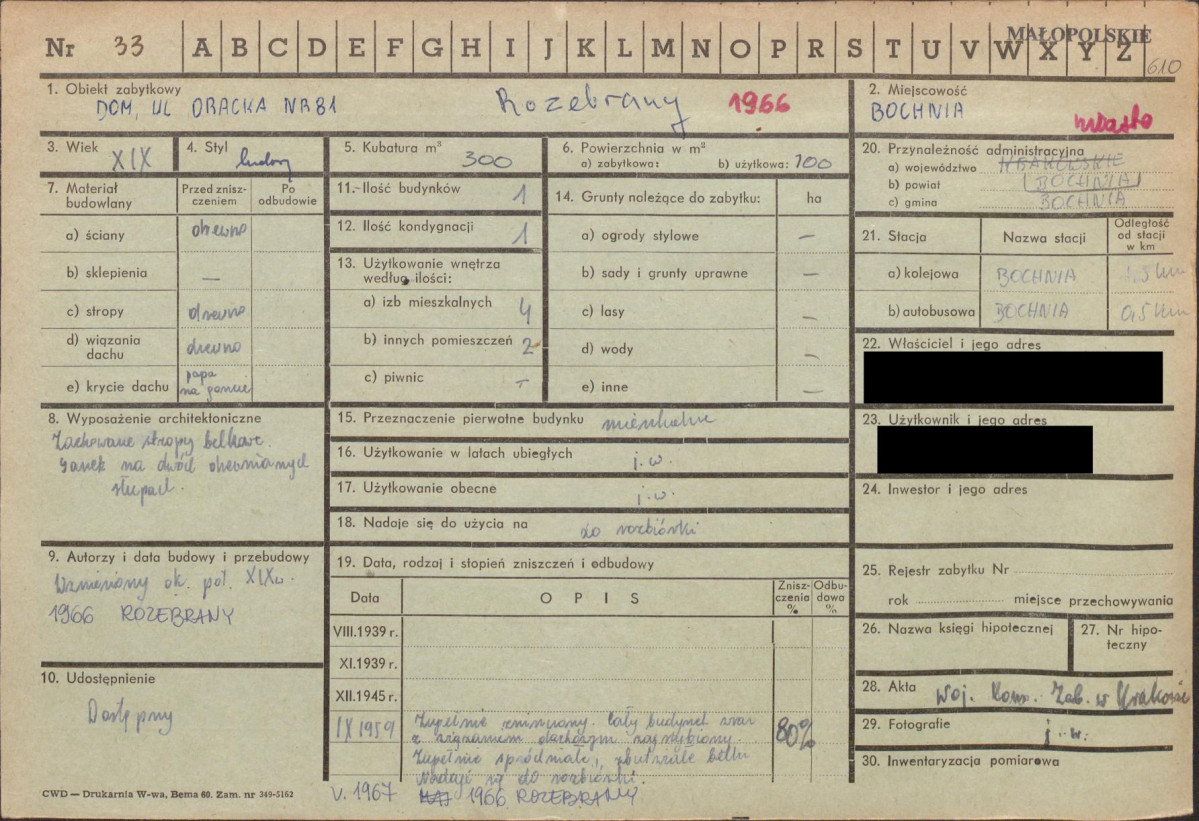 Nr 33 A B C D E F G H I J K L M N O P R S T U V W X Y Z
MAŁOPOLSKIE
610
1. Obiekt zabytkowy
DOM, UL ORACKA NR 81 Rozebrany 1966
2. Miejscowość
BOCHNIA
miasto
3. Wiek XIX
4. Styl ludowy
5. Kubatura m³ 300
6. Powierzchnia w m²
a) zabytkowa: b) użytkowa: 100
20. Przynależność administracyjna
a) województwo KRAKOWSKIE
b) powiat BOCHNIA
c) gmina BOCHNIA
7. Materiał budowlany
Przed znisz-
czeniem
Po
odbudowie
a) ściany drewno
b) sklepienia —
c) stropy drewno
d) wiązania
dachu drewno
e) krycie dachu papa
na goncie
11. Ilość budynków 1
12. Ilość kondygnacji 1
13. Użytkowanie wnętrza
według ilości:
a) izb mieszkalnych 4
b) innych pomieszczeń 2
c) piwnic –
14. Grunty należące do zabytku: ha
a) ogrody stylowe —
b) sady i grunty uprawne —
c) lasy —
d) wody —
e) inne —
21. Stacja Nazwa stacji Odległość
od stacji
w km
a) kolejowa BOCHNIA 1,5 km
b) autobusowa BOCHNIA 0,5 km
22. Właściciel i jego adres
23. Użytkownik i jego adres
24. Inwestor i jego adres
8. Wyposażenie architektoniczne
Zachowane stropy belkowe.
Ganek na dwóch drewnianych
słupach.
15. Przeznaczenie pierwotne budynku mieszkalne
16. Użytkowanie w latach ubiegłych j.w.
17. Użytkowanie obecne j.w.
18. Nadaje się do użycia na do rozbiórki
9. Autorzy i data budowy i przebudowy
Wzniesiony ok. poł. XIX w.
1966 ROZEBRANY
10. Udostępnienie
Dostępny
19. Data, rodzaj i stopień zniszczeń i odbudowy
Data OPIS Znisz-
czenia
%
Odbu-
dowa
%
VIII.1939 r.
XI.1939 r.
XII.1945 r.
IX 1959 Zupełnie zniszczony. Cały budynek wraz 80%
z wiązaniem dachowym
Zupełnie spróchniałe, zbutwiałe belki
Nadaje się do rozbiórki.
V. 1967 1966 ROZEBRANY
25. Rejestr zabytku Nr
rok miejsce przechowywania
26. Nazwa księgi hipotecznej
27. Nr hipo-
teczny
28. Akta Woj. Kons. Zab. w Krakowie
29. Fotografie j.w.
30. Inwentaryzacja pomiarowa
CWD — Drukarnia W-wa, Bema 60. Zam. nr 349-5162